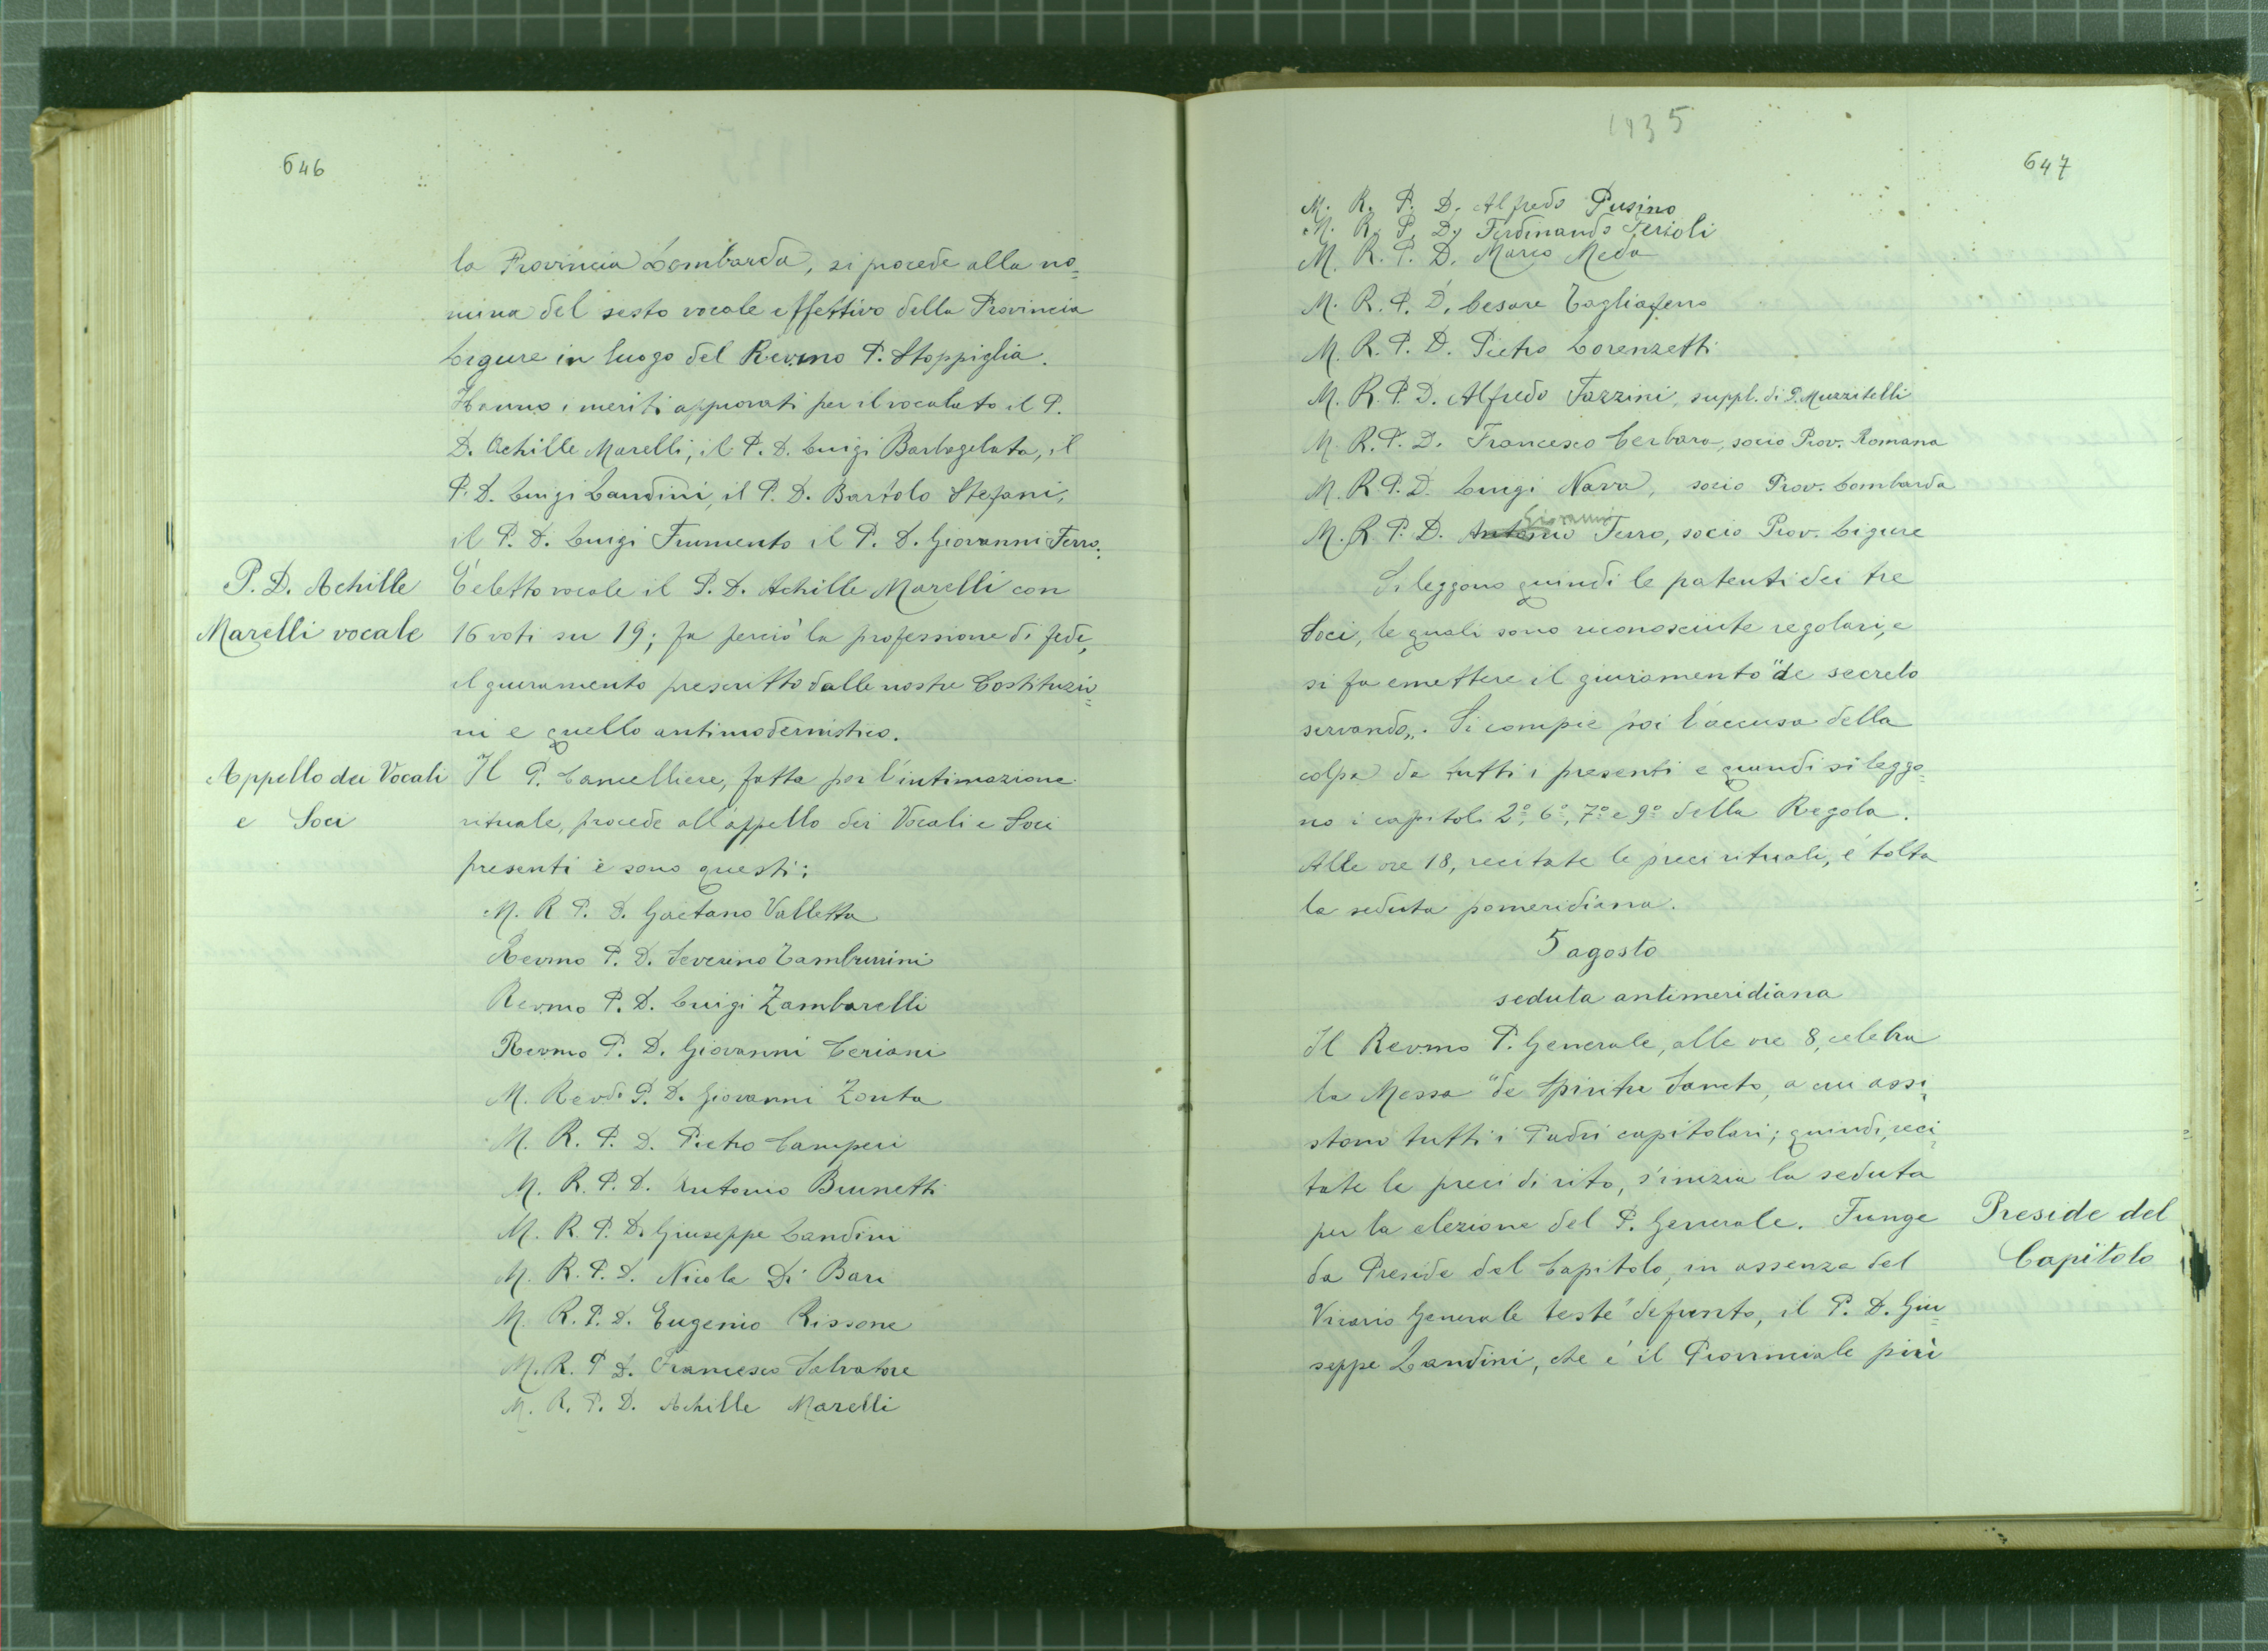 646
la Provincia Lombarda, si procede alla no=
mina del sesto vocale effettivo della Provincia
Ligure in luogo del Rev.mo P. Stoppiglia.
Hanno i meriti approvati per il vocalato il P.
D. Achille Marelli, il P. D. Luigi Barbagelata, il
P. D. Luigi Landini, il P. D. Bartolo Stefani,
il P. D. Luigi Frumento il P. D. Giovanni Ferro.
P. D. Achille
Marelli vocale
È eletto vocale il P. D. Achille Marelli con
16 voti su 19; fa perciò la professione di fede,
il giuramento prescritto dalle nostre Costituzio=
ni e quello antimodernistico.
Appello dei Vocali
e Soci
Il P. Cancelliere, fatta poi l'intimazione
rituale, procede all'appello dei Vocali e Soci
presenti e sono questi:
M. R. P. D. Gaetano Valletta
Rev.mo P. D. Severino Tamburrini
Rev.mo P. D. Luigi Zambarelli
Rev.mo P. D. Giovanni Ceriani
M. Revdo P. D. Giovanni Zonta
M. R. P. D. Pietro Camperi
M. R. P. D. Antonio Brunetti
M. R. P. D. Giuseppe Landini
M. R. P. D. Nicola Di Bari
M. R. P. D. Eugenio Rissone
M. R. P. D. Francesco Salvatore
M. R. P. D. Achille Marelli
1935
647
M. R. P. D. Alfredo Pusino
M. R. P. D. Ferdinando Ferioli
M. R. P. D. Marco Meda
M. R. P. D. Cesare Tagliaferro
M. R. P. D. Pietro Lorenzetti
M. R. P. D. Alfredo Fazzini, suppl. di P. Muzzitelli
M. R. P. D. Francesco Cerbara, socio Prov. Romana
M. R. P. D. Luigi Nava, socio Prov. Lombarda
Giovanni
M. R. P. D. Antonio Ferro, socio Prov. Ligure
Si leggono quindi le patenti dei tre
Soci, le quali sono riconosciute regolari, e
si fa emettere il giuramento "de secreto
servando„. Si compie poi l'accusa della
colpa da tutti i presenti e quindi si leggo=
no i capitoli 2º, 6º, 7º e 9º della Regola.
Alle ore 18, recitate le preci rituali, è tolta
la seduta pomeridiana.
5 agosto
seduta antimeridiana
Il Rev.mo P. Generale, alle ore 8, celebra
la Messa "de Spiritu Sancto, a cui assi=
stono tutti i Padri capitolari; quindi, reci=
tate le preci di rito, s'inizia la seduta
per la elezione del P. Generale. Funge
da Preside del Capitolo, in assenza del
Vicario Generale testè defunto, il P. D. Giu=
seppe Landini, che è il Provinciale più
Preside del
Capitolo